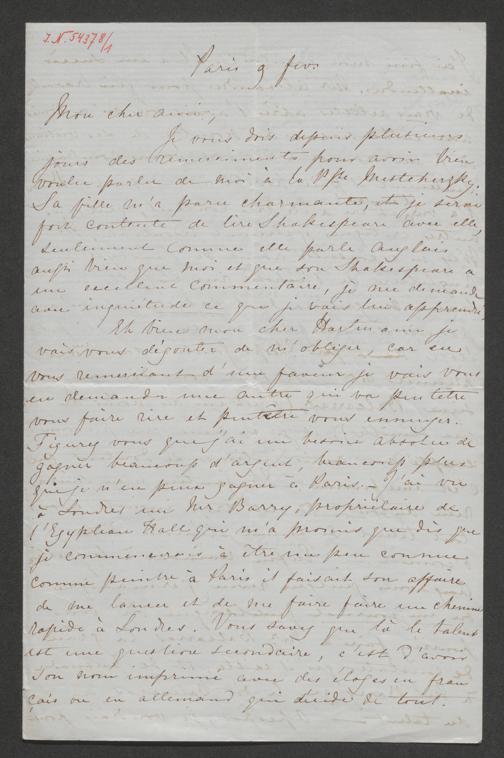 I.N. 54378/1
Paris 9 fevr
Mon cher ami,
Je vous dois depuis plusieurs
jours des remerciments pour avoir bien
voulu parler de moi à la Psse Mestchersky.
Sa fille m'a paru charmante, et je serai
fort contente de lire Shakespeare avec elle,
seulement comme elle parle anglais
aussi bien que moi et que son Shakespeare a
un excellent commentaire, je me demande
avec inquiétude ce que je vais lui apprendre.
Eh bien mon cher Hartmann je
vais vous dégouter de m'obliger, car en
vous remerciant d'une faveur je vais vous
en demander une autre qui va peutetre
vous faire rire et peutêtre vous ennuyer.
Figurez vous que j'ai un besoin absolu de
gagner beaucoup d'argent, beaucoup plus
que je n'en puis gagner à Paris. — J'ai vu
à Londres un Mr Barry, propriétaire de
l'Egyptian Hall qui m'a promis que dès que
je commencerais à être un peu connue
comme peintre à Paris il faisait son affaire
de me lancer et de me faire faire un chemin
rapide à Londres. Vous savez que là le talent
est une question secondaire, c'est d'avoir
son nom imprimé avec des éloges en fran
çais ou en allemand qui décide de tout.